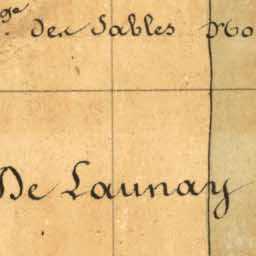 ge des Sables No
De Launay